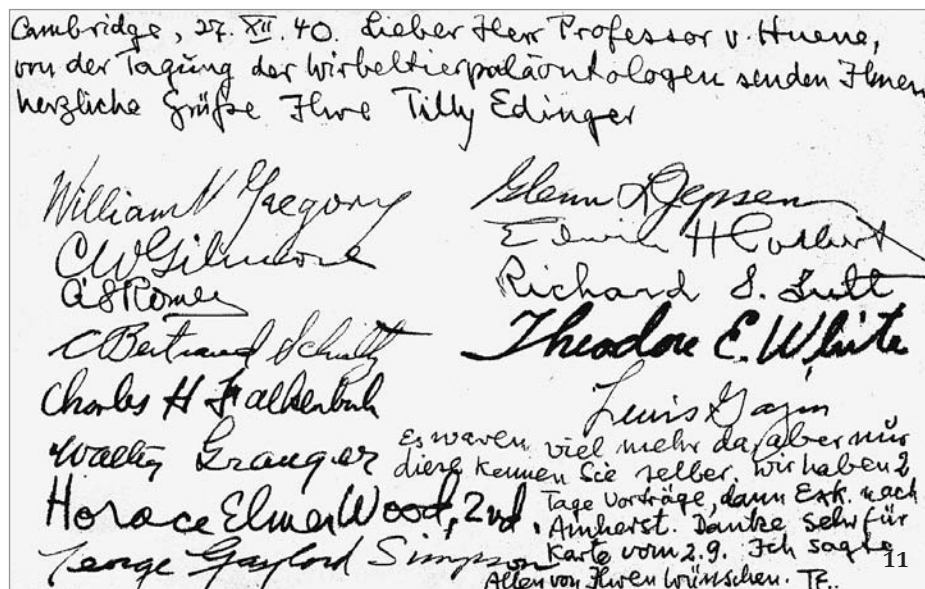 Cambridge, 27. XII. 40. Lieber Herr Professor v. Huene,
von der Tagung der Wirbeltierpaläontologen senden Ihnen
herzliche Grüße Ihre Tilly Edinger
William K Gregory
CW Gilmore
A S Romer
C Bertrand Schultz
Charles H Falkenbach
Walter Granger
Horace Elmer Wood, 2nd.
George Gaylord Simpson
Glenn L Jepsen
Edwin H Colbert
Richard S. Lull
Theodore E. White
Lewis Gazin
Es waren viel mehr da, aber nur
diese kennen Sie selber. Wir haben 2
Tage Vorträge, dann Exk. nach
Amherst. Danke sehr für
Karte vom 2.9. Ich sagte
Allen von Ihren Wünschen. TE.
11